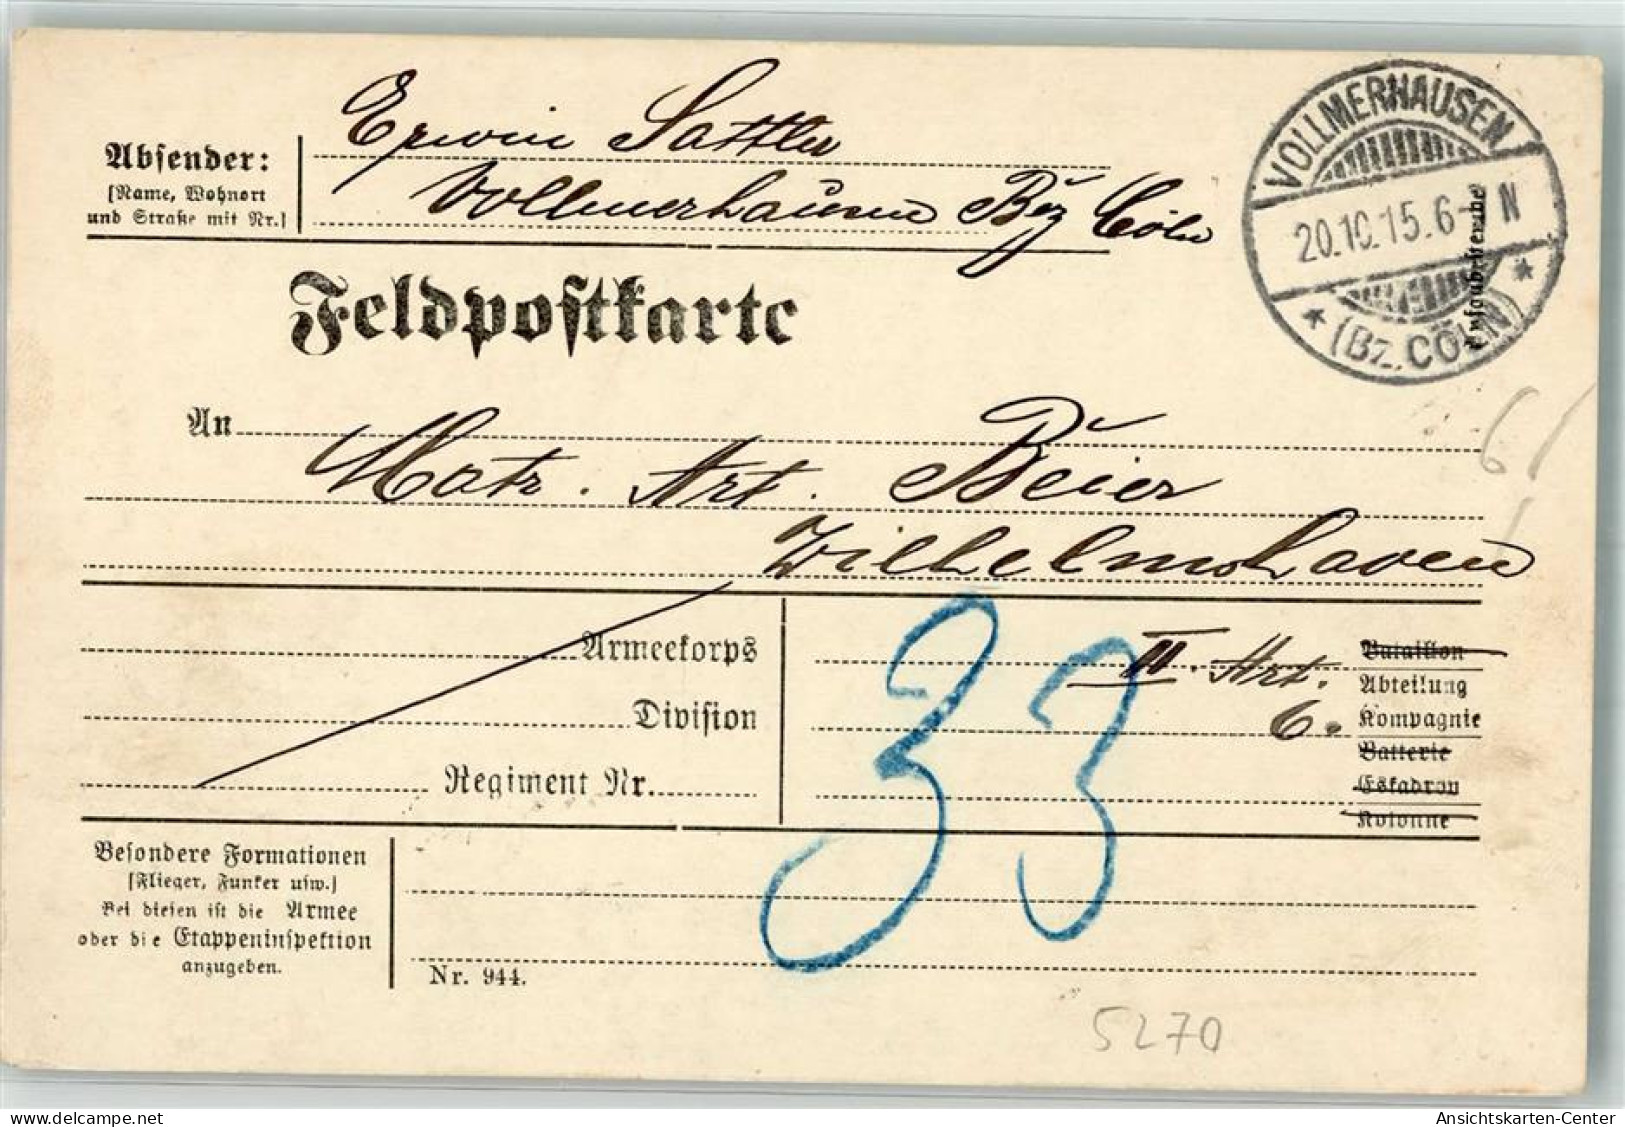 Absender:
[Name, Wohnort
und Straße mit Nr.]
Erwin Sattler
Vollmerhausen Bez Cöln
VOLLMERHAUSEN
20.10.15.6-7 N
* (Bz. CÖLN) *
Feldpostkarte
An
Matr. Art. Beier
Wilhelmshaven
Armeekorps
Division
Regiment Nr.
III. Art.
6.
Bataillon
Abteilung
Kompagnie
Batterie
Eskadron
Kolonne
33
Besondere Formationen
[Flieger, Funker usw.]
Bei diesen ist die Armee
oder die Etappeninspektion
anzugeben.
Nr. 944.
5270
Ansichtskarten-Center